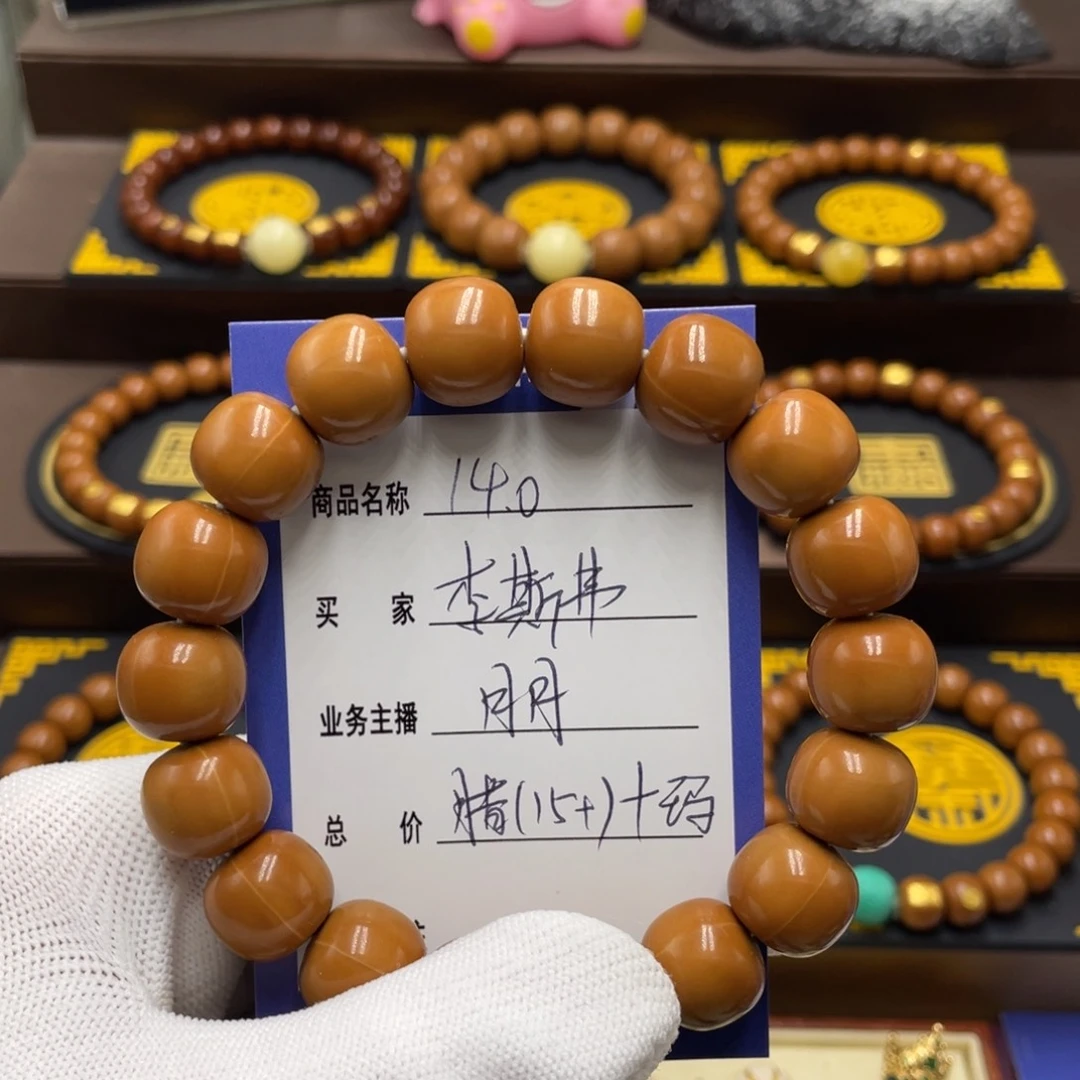 商品名称 14.0
买 家 李斯弗
业务主播 月月
总 价 腊(15+)十玛